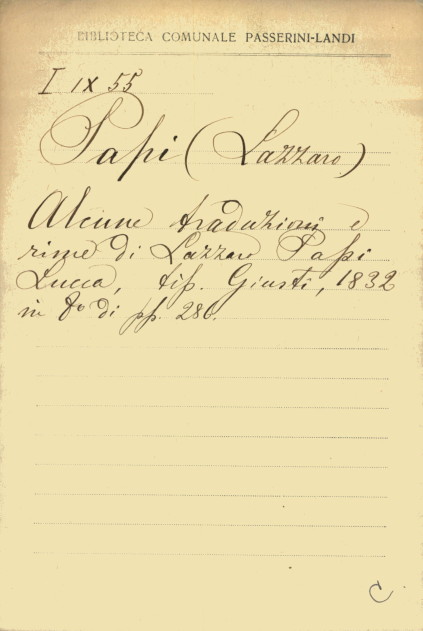 BIBLIOTECA COMUNALE PASSERINI-LANDI
I IX 55
Papi (Lazzaro)
Alcune traduzioni e
rime di Lazzaro Papi
Lucca, tip. Giusti, 1832
in 8º di pp. 280.
C